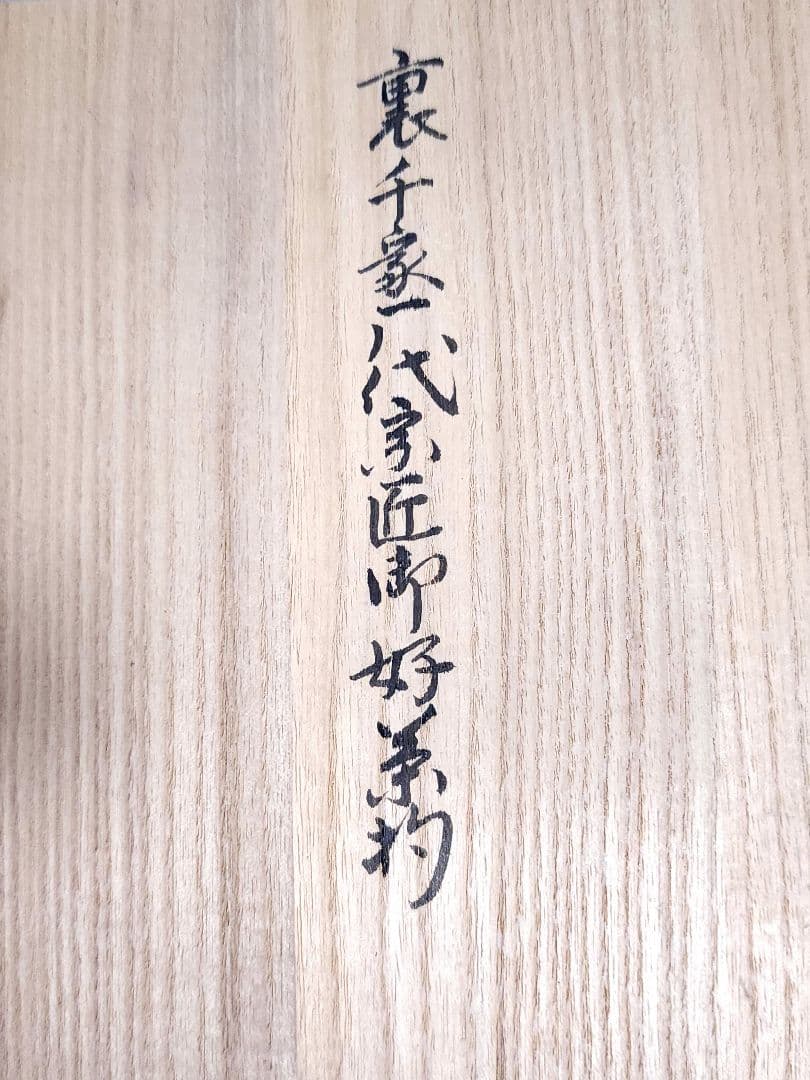 裏千家一八代宗匠御好茶杓